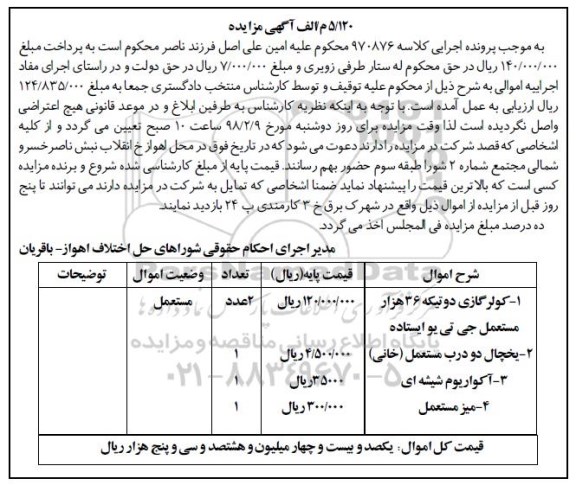 ۵/۱۲۰ م الف آگهی مزایده
به موجب پرونده اجرایی کلاسه ۹۷۰۸۷۶ محکوم علیه امین علی اصل فرزند ناصر محکوم است به پرداخت مبلغ
۱۴۰/۰۰۰/۰۰۰ ریال در حق محکوم له ستار طرفی زویری و مبلغ ۷/۰۰۰/۰۰۰ ریال در حق دولت و در راستای اجرای مفاد
اجراییه اموالی به شرح ذیل از محکوم علیه توقیف و توسط کارشناس منتخب دادگستری جمعا به مبلغ ۱۲۴/۸۳۵/۰۰۰
ریال ارزیابی به عمل آمده است. با توجه به اینکه نظریه کارشناس به طرفین ابلاغ و در موعد قانونی هیچ اعتراضی
واصل نگردیده است لذا وقت مزایده برای روز دوشنبه مورخ ۹۸/۲/۹ ساعت ۱۰ صبح تعیین می گردد و از کلیه
اشخاصی که قصد شرکت در مزایده را دارند دعوت می شود که در تاریخ فوق در محل اهواز خ انقلاب نبش ناصرخسرو
شمالی مجتمع شماره ۲ شورا طبقه سوم حضور بهم رسانند. قیمت پایه از مبلغ کارشناسی شده شروع و برنده مزایده
کسی است که بالاترین قیمت را پیشنهاد نماید ضمنا اشخاصی که تمایل به شرکت در مزایده دارند می توانند تا پنج
روز قبل از مزایده از اموال ذیل واقع در شهرک برق خ ۳ کارمندی پ ۲۴ بازدید نمایند.
ده درصد مبلغ مزایده فی المجلس اخذ می گردد.
مدیر اجرای احکام حقوقی شوراهای حل اختلاف اهواز- باقریان
شرح اموال قیمت پایه(ریال) تعداد وضعیت اموال توضیحات
۱-کولرگازی دوتیکه ۳۶ هزار ۱۲۰/۰۰۰/۰۰۰ ریال ۲عدد مستعمل
مستعمل جی تی یو ایستاده
۲-یخچال دو درب مستعمل (خانی) ۴/۵۰۰/۰۰۰ ریال ۱
۳-آکواریوم شیشه ای ۳۵۰۰۰ ریال ۱
۴-میز مستعمل ۳۰۰/۰۰۰ ریال ۱
قیمت کل اموال: یکصد و بیست و چهار میلیون و هشتصد و سی و پنج هزار ریال
پایگاه اطلاع رسانی مناقصه و مزایده
۰۲۱-۸۸۳۴۹۶۷۰-۵